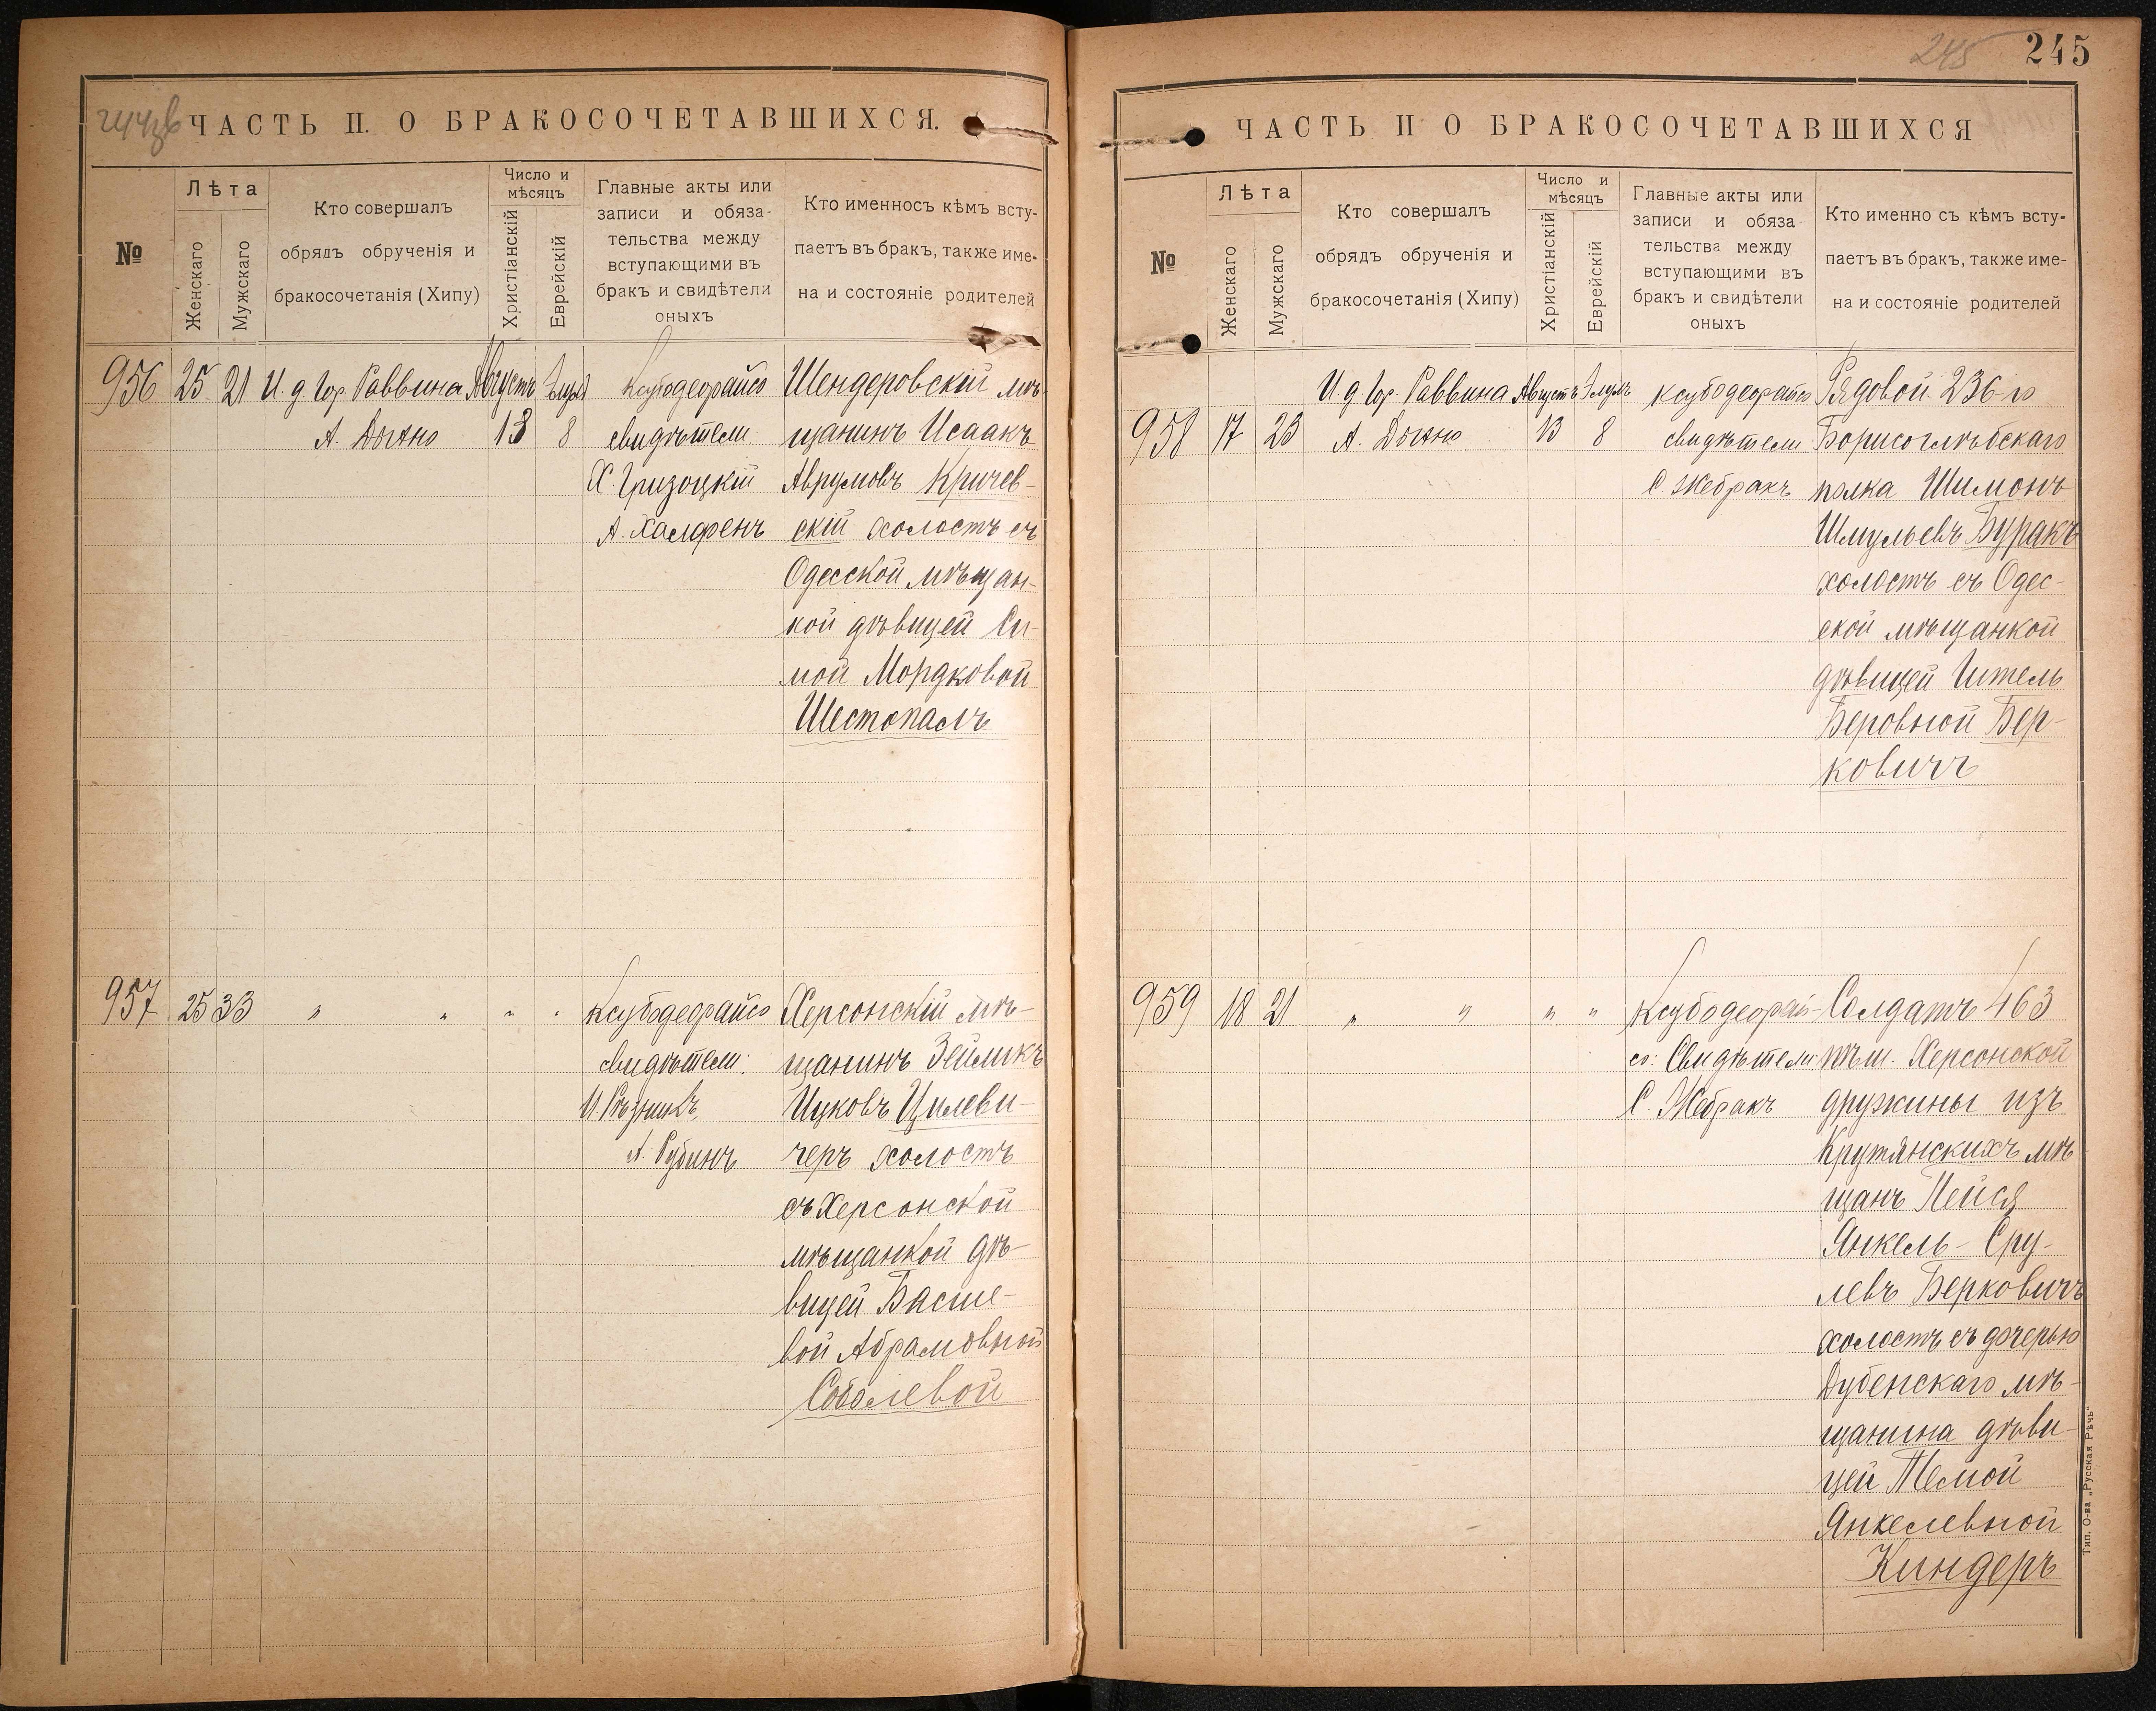 245
245
ЧАСТЬ II. О БРАКОСОЧЕТАВШИХСЯ.
№
Лѣта
Женскаго
Мужскаго
Кто совершалъ
обрядъ обрученія и
бракосочетанія (Хипу)
Число и
мѣсяцъ
Христіанскій
Еврейскій
Главные акты или
записи и обяза-
тельства между
вступающими въ
бракъ и свидѣтели
оныхъ
Кто именносъ кѣмъ всту-
паетъ въ бракъ, также име-
на и состояніе родителей
956 25 21 И. д Гор Раввина Августъ Элулъ
А. Дыхно 13 8
Ксубодеорайсо
свидѣтели
Х. Гризоцкій
А. Халфенъ
Шендеровскій мѣ-
щанинъ Исаакъ
Аврумовъ Кричев-
скій холостъ съ
Одесской мѣщан-
кой дѣвицей Си-
мой Мордковой
Шестопалъ
957 25 33 " " " "
Ксубодеорайсо
свидѣтели:
И. Рѣзникъ
А. Рубинъ
Херсонскій мѣ-
щанинъ Зейликъ
Ицковъ Цилеви-
черъ холостъ
съ Херсонской
мѣщанкой дѣ-
вицей Басше-
вой Абрамовной
Соболевой
ЧАСТЬ II О БРАКОСОЧЕТАВШИХСЯ
№
Лѣта
Женскаго
Мужскаго
Кто совершалъ
обрядъ обрученія и
бракосочетанія (Хипу)
Число и
мѣсяцъ
Христіанскій
Еврейскій
Главные акты или
записи и обяза
тельства между
вступающими въ
бракъ и свидѣтели
оныхъ
Кто именно съ кѣмъ всту-
паетъ въ бракъ, также име-
на и состояніе родителей
И. д Гор. Раввина Августъ Элулъ
958 17 23 А. Дыхно 13 8
Ксубодеорайсо
свидѣтели
С. Жебракъ
Рядовой 236-го
Борисоглѣбскаго
полка Шимонъ
Шмульевъ Буракъ
холостъ съ Одес-
ской мѣщанкой
дѣвицей Итель
Беровной Бер-
ковичъ
959 18 21 " " " "
Ксубодеорай-
со: Свидѣтели
С. Жебракъ
Солдатъ 463
пѣш. Херсонской
дружины изъ
Крутянскихъ мѣ
щанъ Пейся
Янкель-Сру-
левъ Берковичъ
холостъ съ дочерью
Дубенскаго мѣ-
щанина дѣви-
цей Темой
Янкелевной
Киндеръ
Тип. О-ва „Русская Рѣчь“